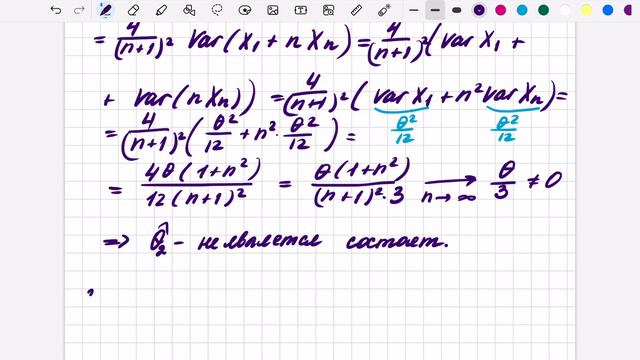 = 4/(n+1)² Var(X₁ + nXₙ) = 4/(n+1)² (Var X₁ +
+ Var(nXₙ)) = 4/(n+1)² (Var X₁ + n² Var Xₙ) =
θ²/12 θ²/12
= 4/(n+1)² (θ²/12 + n² · θ²/12) =
= 4θ(1+n²)/12(n+1)² = θ(1+n²)/(n+1)²·3 ⟶ n→∞ θ/3 ≠ 0
=> θ̂₂ - не является состоят.